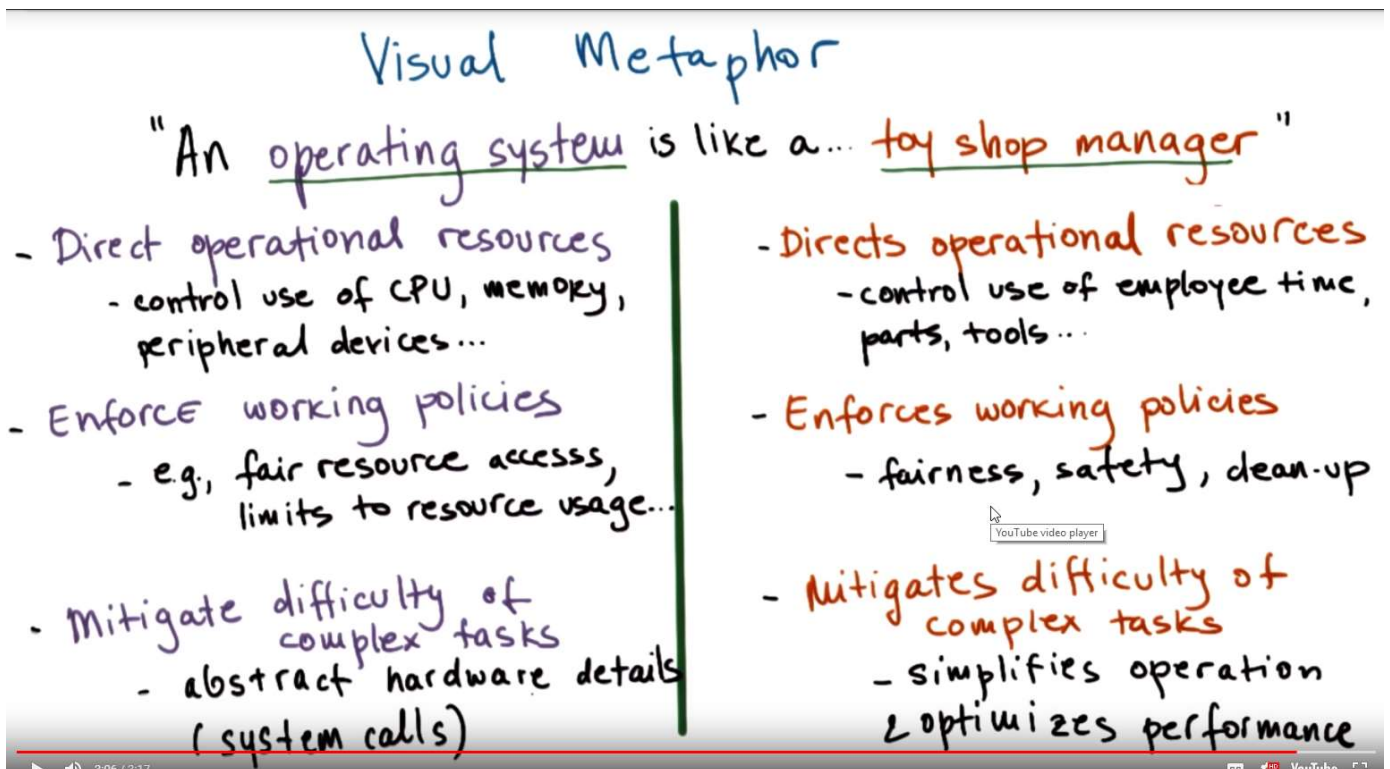 Visual Metaphor
"An operating system is like a... toy shop manager"
- Direct operational resources
- control use of CPU, memory,
peripheral devices...
- Enforce working policies
- e.g., fair resource accesss,
limits to resource usage...
- Mitigate difficulty of
complex tasks
- abstract hardware details
(system calls)
- Directs operational resources
- control use of employee time,
parts, tools...
- Enforces working policies
- fairness, safety, clean-up
YouTube video player
- Mitigates difficulty of
complex tasks
- simplifies operation
& optimizes performance
2:06 / 2:17
CC
HD
YouTube